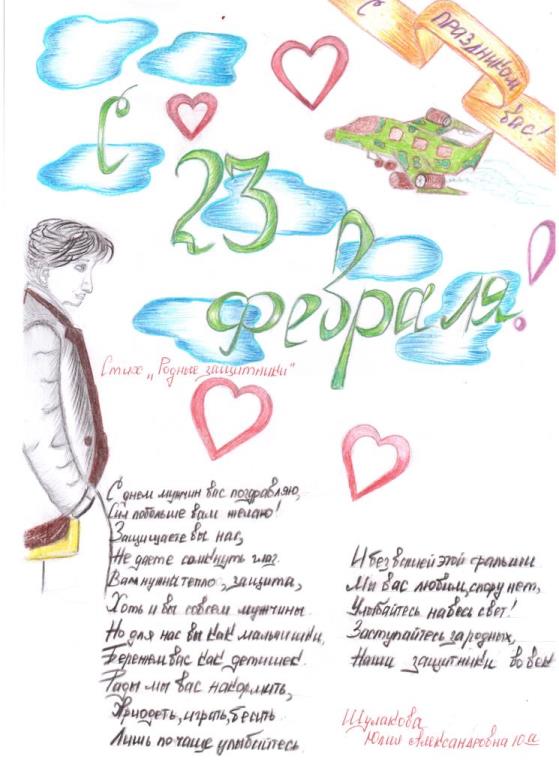 С праздником вас!
С
23
февраля!
Стих "Родные защитники"
С днем мужчин вас поздравляю,
Сил побольше вам желаю!
Защищаете вы нас,
Не даете сомкнуть глаз.
Вам нужны тепло, защита,
Хоть и вы совсем мужчины.
Но для нас вы как мальчишки,
Бережем вас как детишек.
Рады мы вас накормить,
Приодеть, играть, бесить
Лишь почаще улыбайтесь
И без всякой этой фальши
Мы вас любим, спору нет,
Улыбайтесь на весь свет!
Заступайтесь за родных,
Наши защитники во век
Шулакова
Юлия Александровна 10